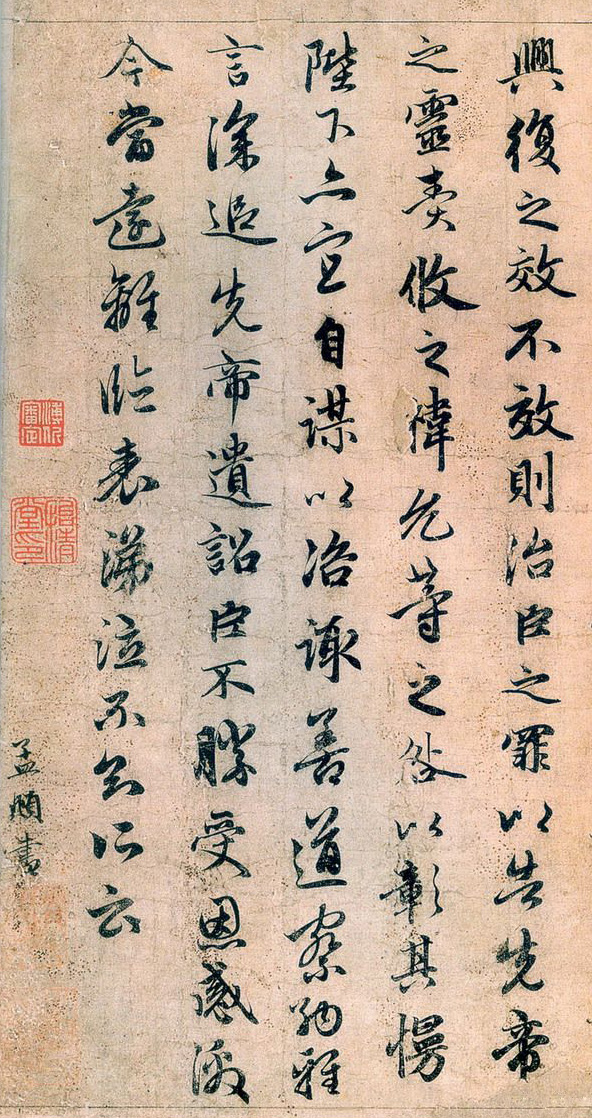 興復之效不效則治臣之罪以告先帝
之靈責攸之禕允等之咎以彰其慢
陛下亦宜自謀以咨諏善道察納雅
言深追先帝遺詔臣不勝受恩感激
今當遠離臨表涕泣不知所云
孟頫書